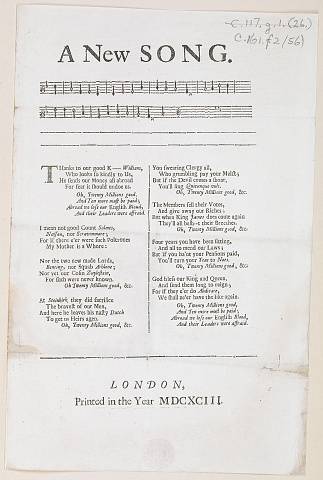 C.117.g.1.(26.)
A New SONG.
THanks to our good K— William,
Who looks so kindly to Us,
He sends our Money all abroad
For fear it should undoe us.
Oh, Twenty Millions good,
And Ten more must be paid;
Abroad to lose our English Blood,
And their Leaders were afraid.
I mean not good Count Solmes,
Nassau, nor
For if there e'er were such Poltroons
My Mother is a Whore:
Nor the two new made Lords,
nor Squab
Nor yet our Colin
For such were never known.
Oh Twenty Millions good, &c.
At Steinkirk they did sacrifice
The bravest of our Men,
And here he leaves his nasty Dutch
To get us Heirs agen.
Oh, Twenty Millions good, &c.
You swearing Clergy all,
Who grumbling pay your Mcisls;
But if the Devil comes about,
You'll sing Quicunque vult.
Oh, Twenty Millions good, &c.
The Members sell their Votes,
And give away our Riches;
But when King James does come again
They'll all their Breeches.
Oh, Twenty Millions good, &c.
Four years you have been sitting,
And all to mend our Laws;
But if you ha'nt your Pensions paid,
You'll turn your Yeas to Noes.
Oh, Twenty Millions good, &c.
God bless our King and Queen,
And send them long to reign;
For if they e'er do Abdicate,
We shall ne'er have the like again.
Oh, Twenty Millions good,
And Ten more must be paid;
Abroad we lose our English Blood,
And their Leaders were afraid.
LONDON,
Printed in the Year MDCXCIII.